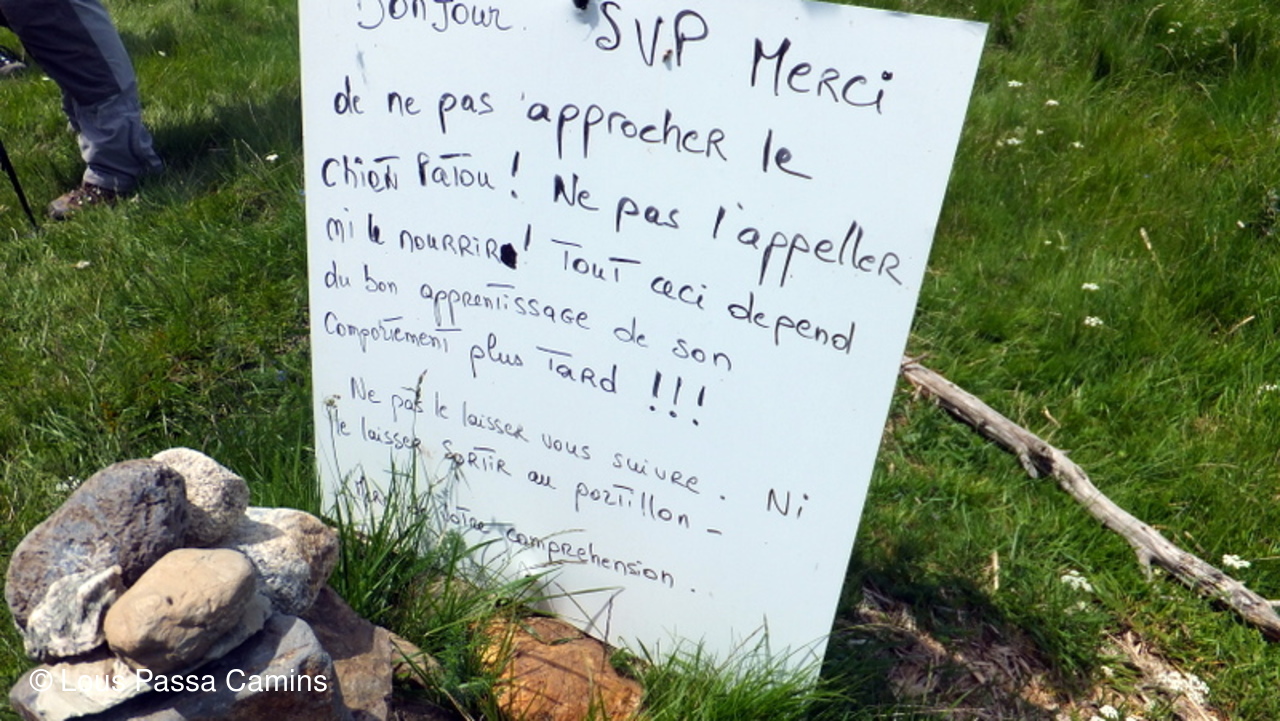 Bonjour. SVP Merci
de ne pas approcher le
Chien Patou ! Ne pas l'appeller
ni le nourrir ! Tout ceci depend
du bon apprentissage de son
Comportement plus Tard !!!
Ne pas le laisser vous suivre. Ni
le laisser sortir au portillon -
Merci de votre comprehension.
© Lous Passa Camins